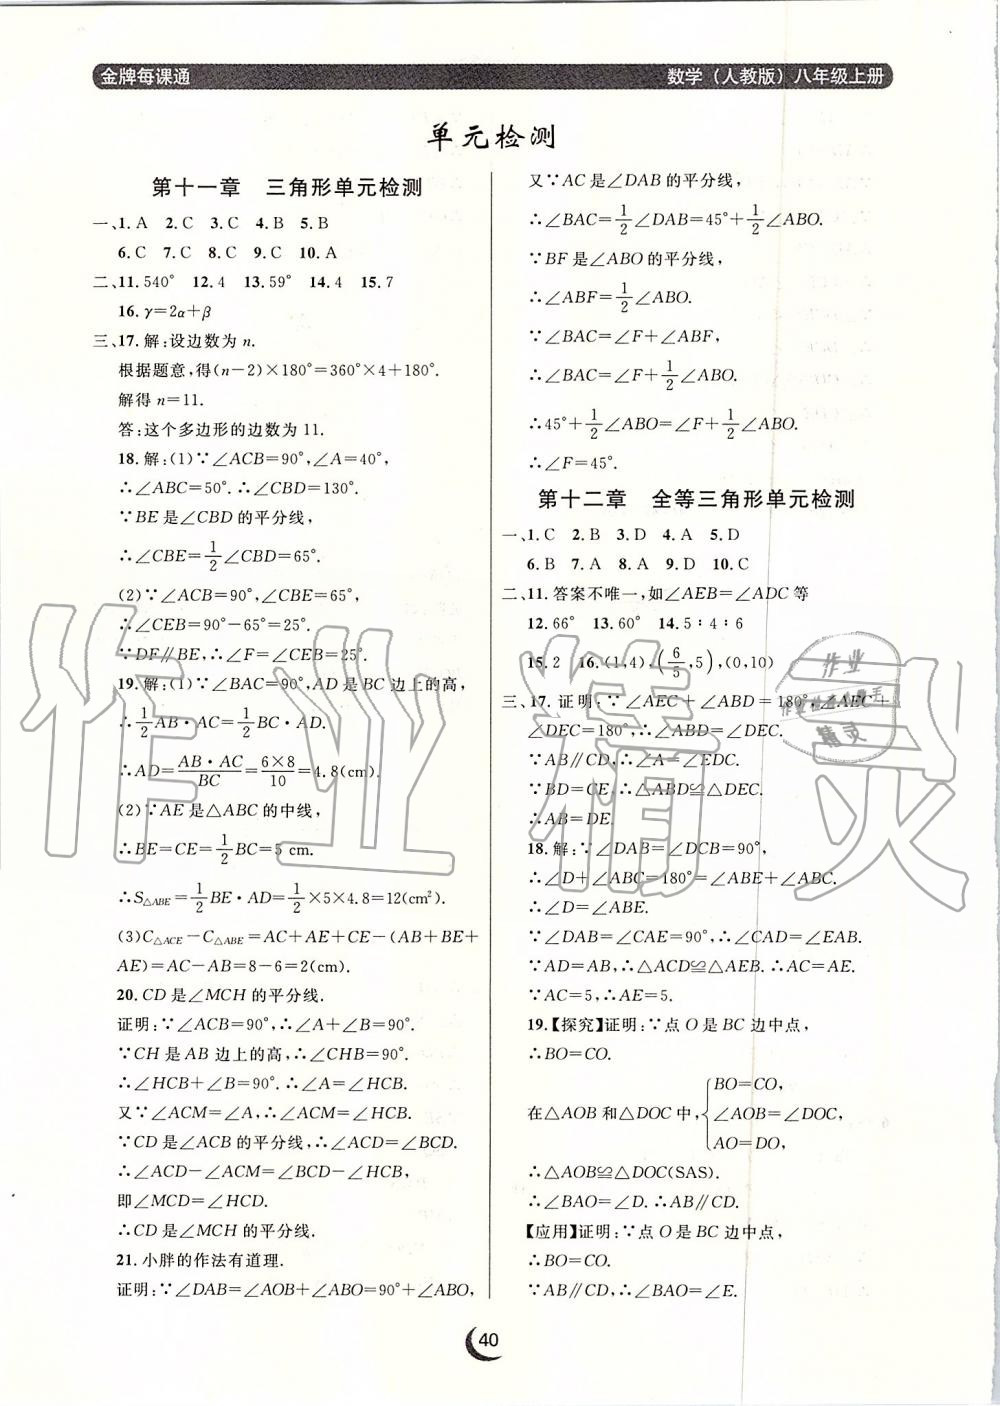 金牌每课通
数学（人教版）八年级上册
单元检测
第十一章　三角形单元检测
一、1. A　2. C　3. C　4. B　5. B
6. C　7. C　8. C　9. C　10. A
二、11. 540°　12. 4　13. 59°　14. 4　15. 7
16. γ=2α+β
三、17. 解:设边数为 n.
根据题意,得(n-2)×180°=360°×4+180°.
解得 n=11.
答:这个多边形的边数为 11.
18. 解:(1)∵∠ACB=90°,∠A=40°,
∴∠ABC=50°. ∴∠CBD=130°.
∵BE 是∠CBD 的平分线,
∴∠CBE=1/2∠CBD=65°.
(2)∵∠ACB=90°,∠CBE=65°,
∴∠CEB=90°-65°=25°.
∵DF∥BE,∴∠F=∠CEB=25°.
19. 解:(1)∵∠BAC=90°,AD 是 BC 边上的高,
∴1/2 AB·AC=1/2 BC·AD.
∴AD=AB·AC/BC=6×8/10=4.8(cm).
(2)∵AE 是△ABC 的中线,
∴BE=CE=1/2 BC=5 cm.
∴S△ABE=1/2 BE·AD=1/2×5×4.8=12(cm²).
(3)C△ACE-C△ABE=AC+AE+CE-(AB+BE+
AE)=AC-AB=8-6=2(cm).
20. CD 是∠MCH 的平分线.
证明:∵∠ACB=90°,∴∠A+∠B=90°.
∵CH 是 AB 边上的高,∴∠CHB=90°.
∴∠HCB+∠B=90°. ∴∠A=∠HCB.
又∵∠ACM=∠A,∴∠ACM=∠HCB.
∵CD 是∠ACB 的平分线,∴∠ACD=∠BCD.
∴∠ACD-∠ACM=∠BCD-∠HCB,
即∠MCD=∠HCD.
∴CD 是∠MCH 的平分线.
21. 小胖的作法有道理.
证明:∵∠DAB=∠AOB+∠ABO=90°+∠ABO,
又∵AC 是∠DAB 的平分线,
∴∠BAC=1/2∠DAB=45°+1/2∠ABO.
∵BF 是∠ABO 的平分线,
∴∠ABF=1/2∠ABO.
∵∠BAC=∠F+∠ABF,
∴∠BAC=∠F+1/2∠ABO.
∴45°+1/2∠ABO=∠F+1/2∠ABO.
∴∠F=45°.
第十二章　全等三角形单元检测
一、1. C　2. B　3. D　4. A　5. D
6. B　7. A　8. A　9. D　10. C
二、11. 答案不唯一,如∠AEB=∠ADC 等
12. 66°　13. 60°　14. 5∶4∶6
15. 2　16. (1,4),(6/5,5),(0,10)
三、17. 证明:∵∠AEC+∠ABD=180°,∠AEC+
∠DEC=180°,∴∠ABD=∠DEC.
∵AB∥CD,∴∠A=∠EDC.
∵BD=CE,∴△ABD≌△DEC.
∴AB=DE.
18. 解:∵∠DAB=∠DCB=90°,
∴∠D+∠ABC=180°=∠ABE+∠ABC.
∴∠D=∠ABE.
∵∠DAB=∠CAE=90°,∴∠CAD=∠EAB.
∵AD=AB,∴△ACD≌△AEB. ∴AC=AE.
∵AC=5,∴AE=5.
19.【探究】证明:∵点 O 是 BC 边中点,
∴BO=CO.
在△AOB 和△DOC 中,{BO=CO,
∠AOB=∠DOC,
AO=DO,
∴△AOB≌△DOC(SAS).
∴∠BAO=∠D. ∴AB∥CD.
【应用】证明:∵点 O 是 BC 边中点,
∴BO=CO.
∵AB∥CD,∴∠BAO=∠E.
40
作业精灵
作业
精灵